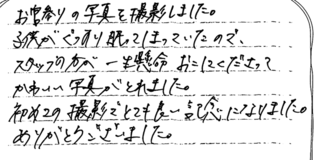 お宮参りの写真を撮影しました。
子供がぐっすり眠ってしまっていたので、
スタッフの方が一生懸命おこしてくださって
かわいい写真がとれました。
初めての撮影でとても良い記念になりました。
ありがとうございました。